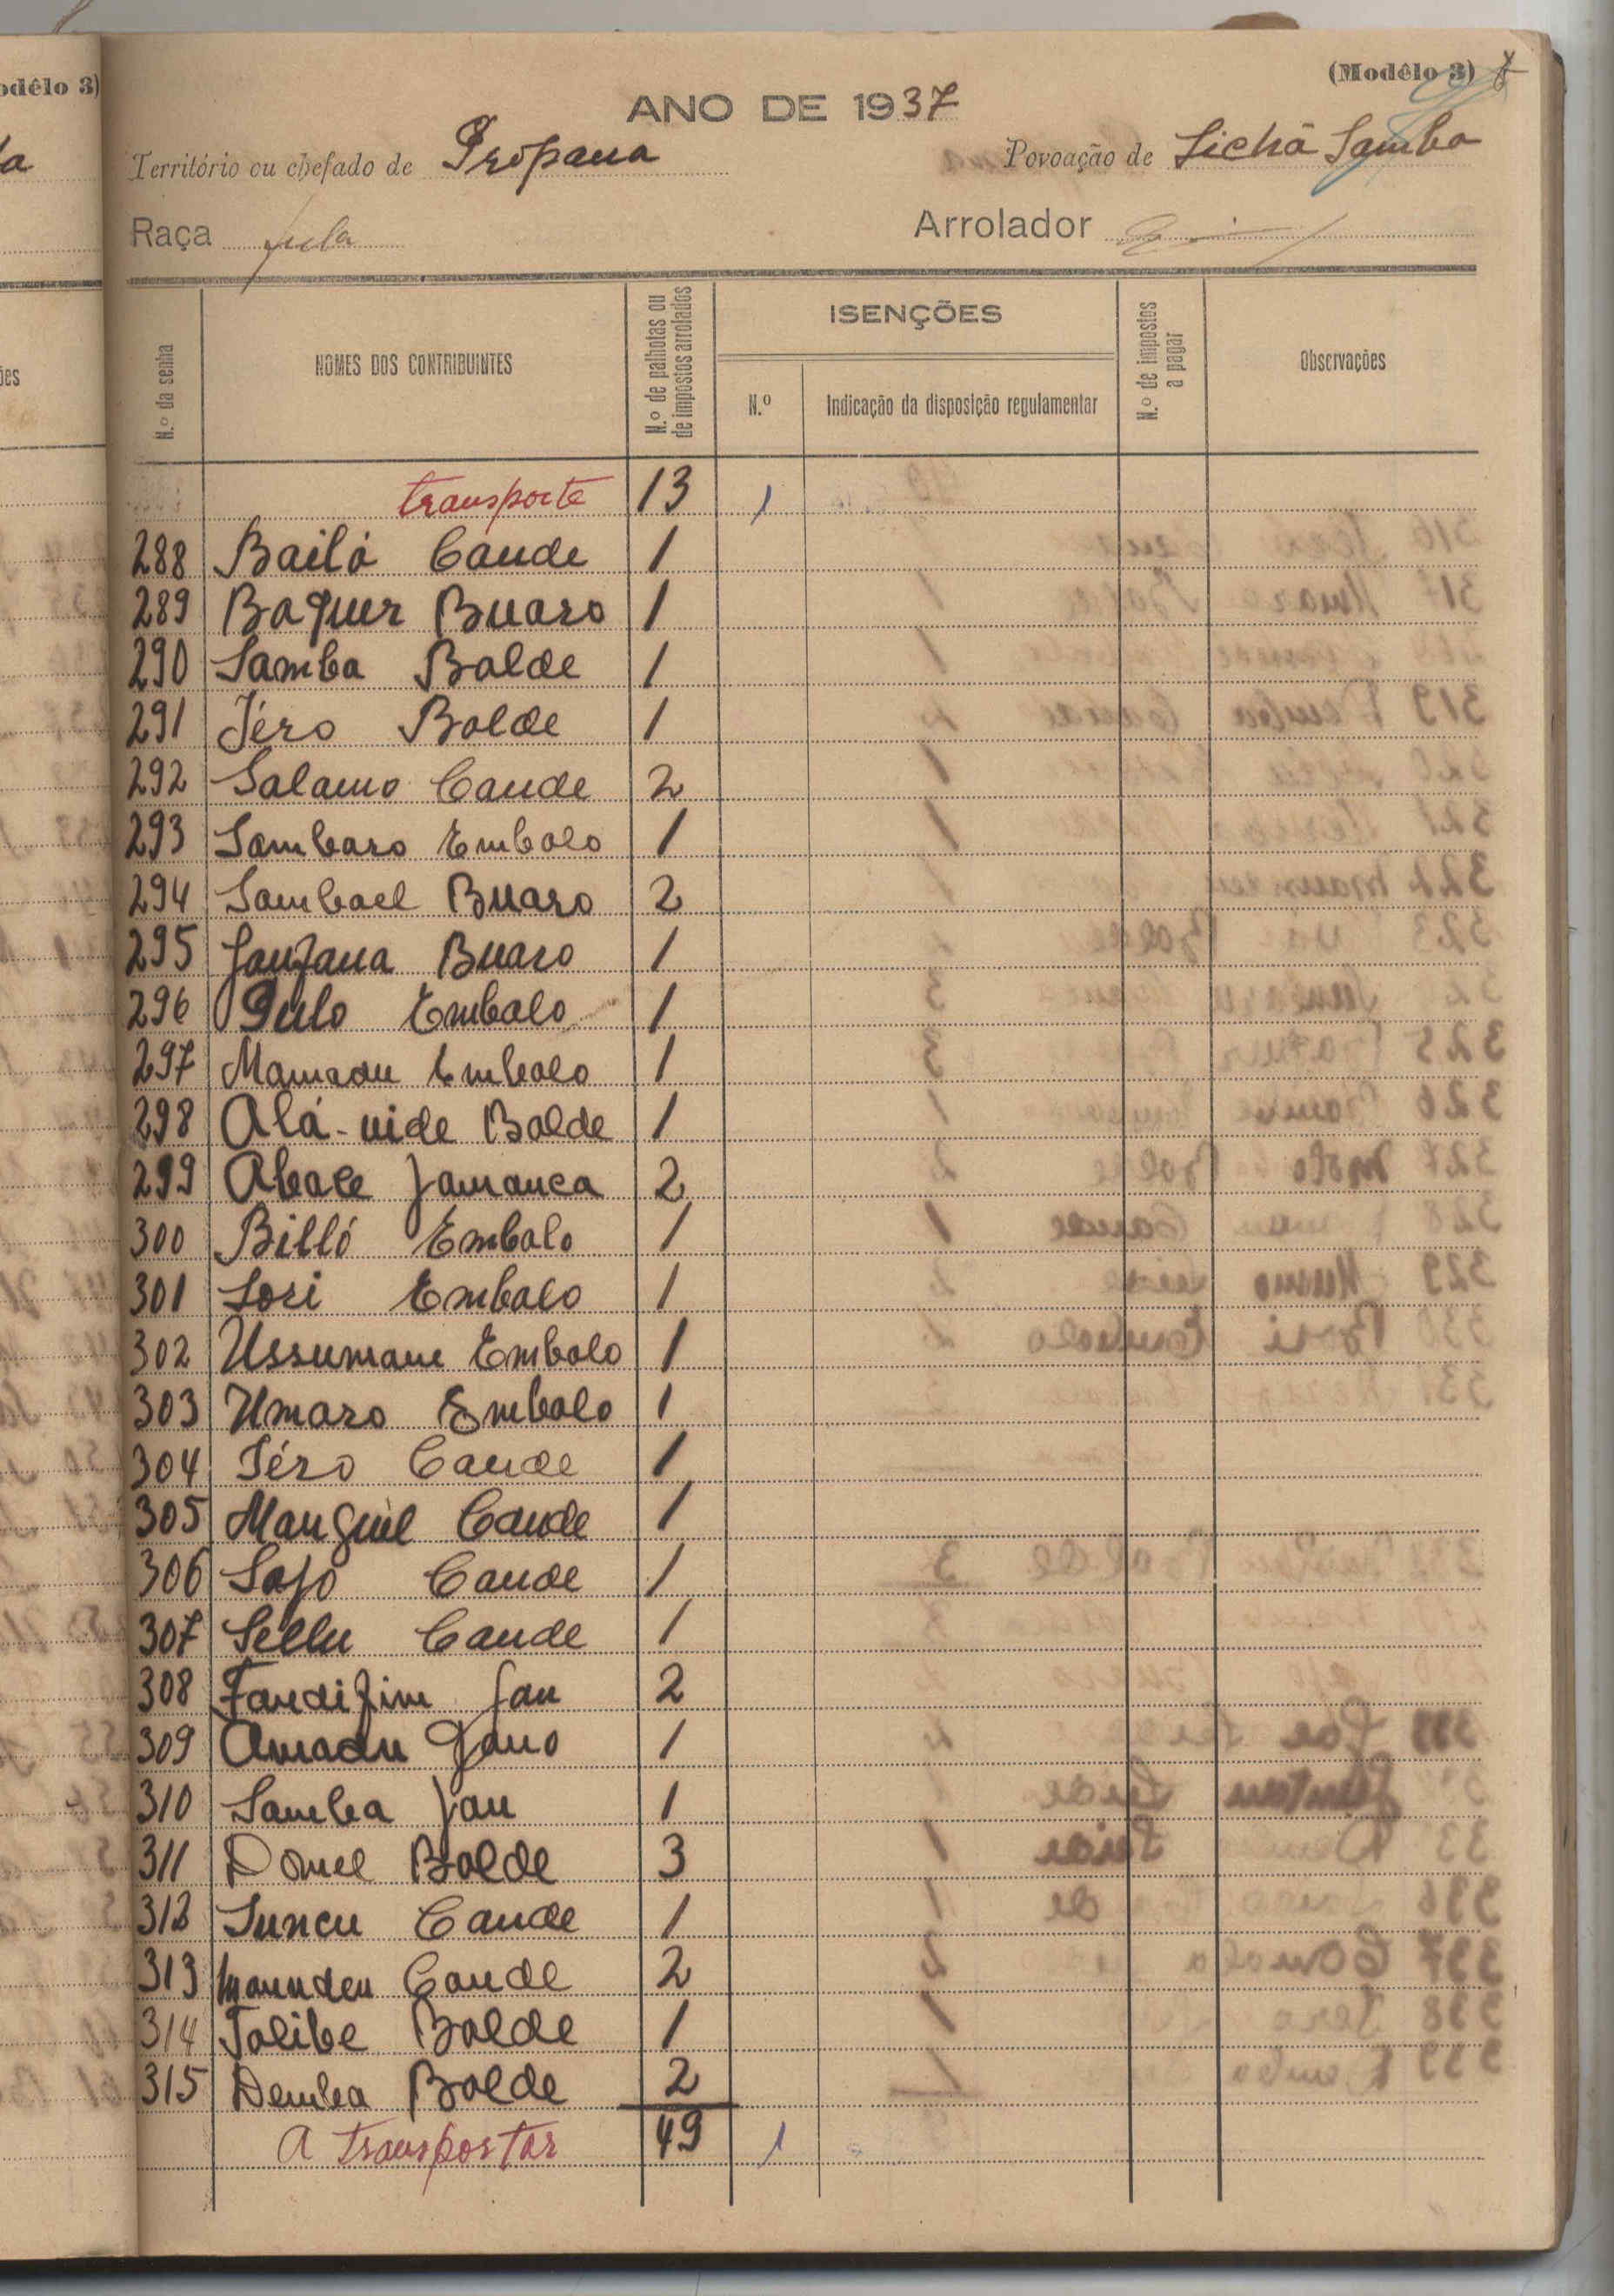 odêlo 3)
(Modêlo 3)
ANO DE 1937
Território ou chefado de Propana Povoação de Sichã Samba
Raça fula Arrolador
N.º da senha NOMES DOS CONTRIBUINTES N.º de palhotas ou de impostos arrolados ISENÇÕES N.º de impostos a pagar Observações
N.º Indicação da disposição regulamentar
transporte 13 1
288 Bailó Cande 1
289 Baquer Buaro 1
290 Samba Balde 1
291 Jéro Balde 1
292 Salamo Cande 2
293 Sambaro Embalo 1
294 Sambael Buaro 2
295 Janfana Buaro 1
296 Pulo Embalo 1
297 Mamadu Embalo 1
298 Alá-uide Balde 1
299 Abale Jamanca 2
300 Billó Embalo 1
301 Sori Embalo 1
302 Ussumane Embalo 1
303 Umaro Embalo 1
304 Jéro Cande 1
305 Manguel Cande 1
306 Sajo Cande 1
307 Sellu Cande 1
308 Jau 2
309 Amadu Gano 1
310 Samba Jau 1
311 Donel Balde 3
312 Suncu Cande 1
313 Maunden Cande 2
314 Talibe Balde 1
315 Demba Balde 2
A transportar 49 1